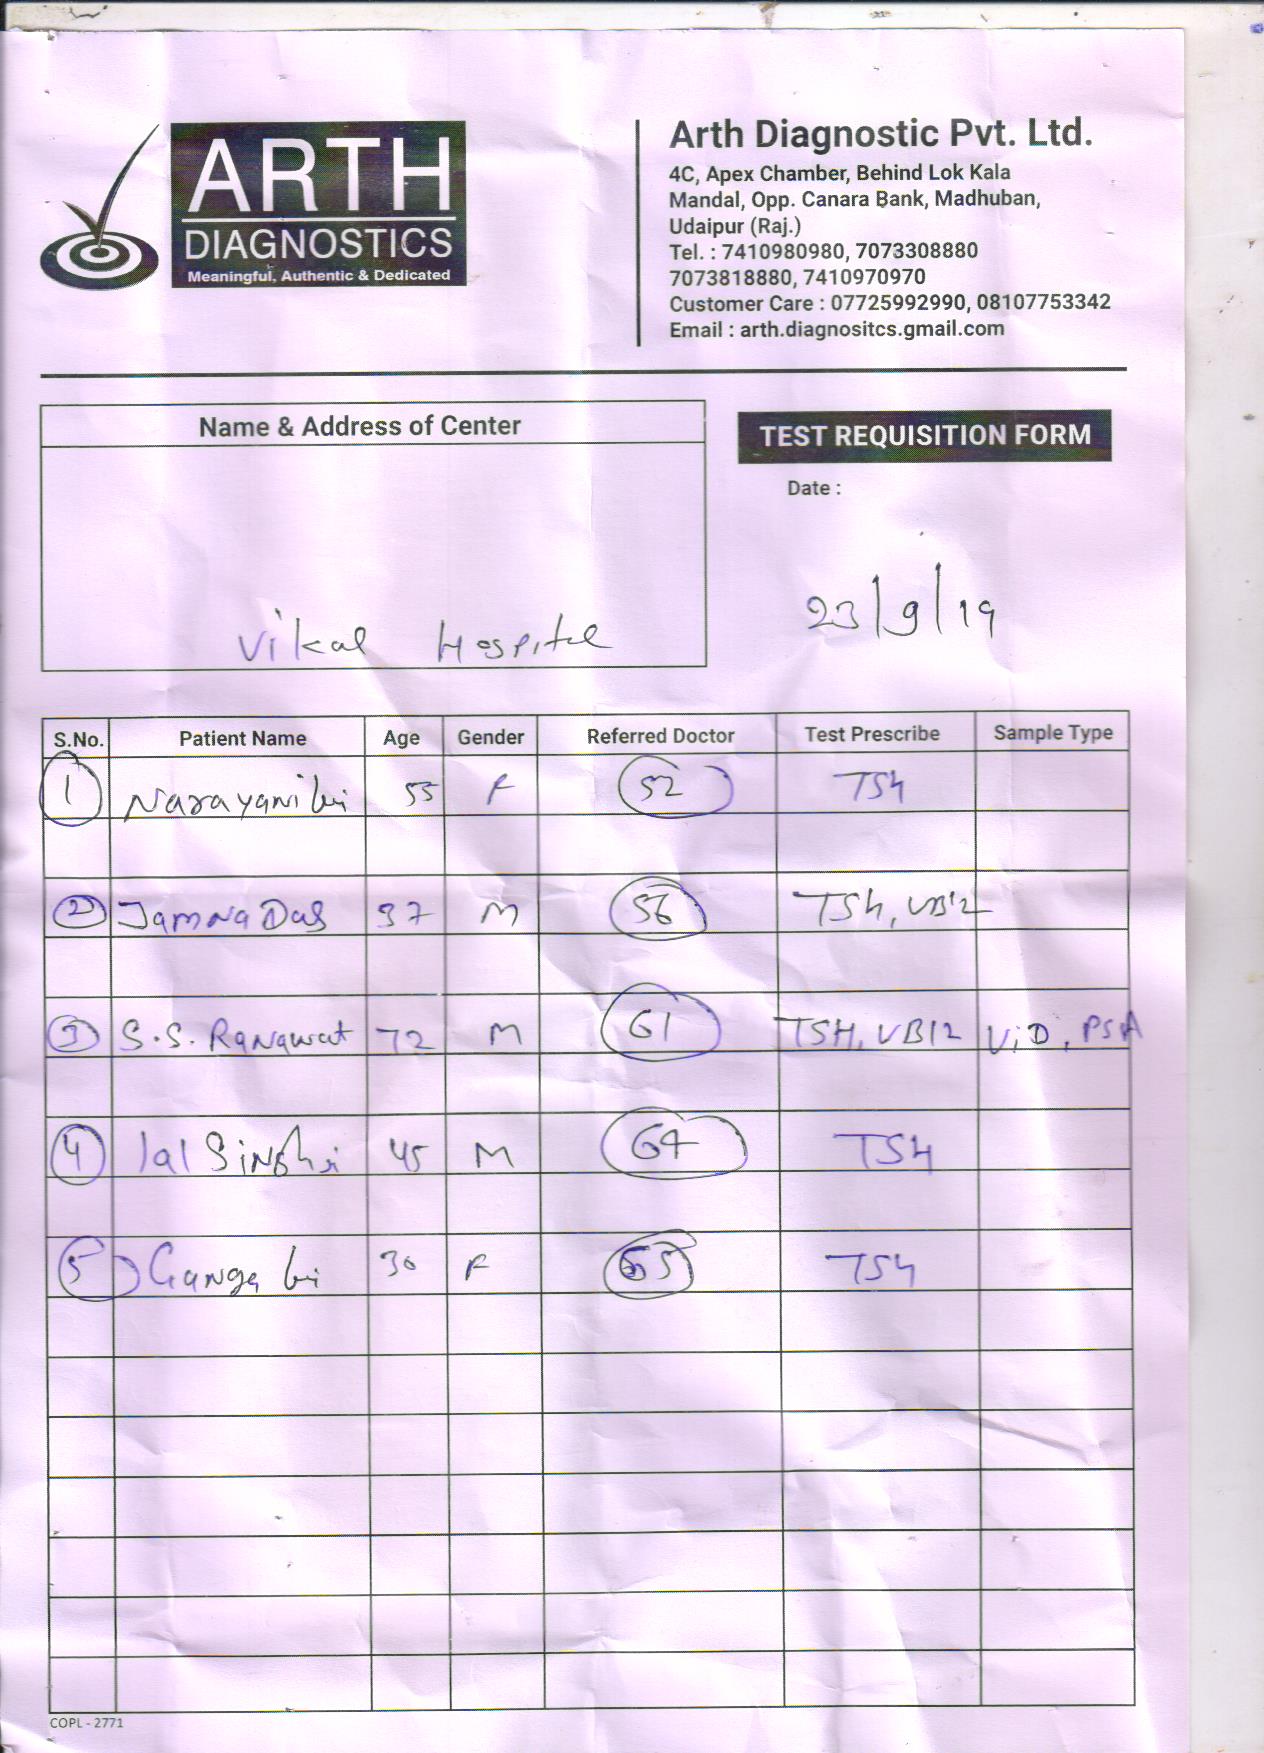 ARTH
DIAGNOSTICS
Meaningful, Authentic & Dedicated
Arth Diagnostic Pvt. Ltd.
4C, Apex Chamber, Behind Lok Kala
Mandal, Opp. Canara Bank, Madhuban,
Udaipur (Raj.)
Tel. : 7410980980, 7073308880
7073818880, 7410970970
Customer Care : 07725992990, 08107753342
Email : arth.diagnositcs.gmail.com
Name & Address of Center
Vikal Hospital
TEST REQUISITION FORM
Date :
23/9/19
S.No. Patient Name Age Gender Referred Doctor Test Prescribe Sample Type
1 Narayani bi 55 F 52 TSH
2 Jamna Das 37 M 56 TSH, VB12
3 S.S. Ranawat 72 M 61 TSH, VB12 ViD, PSA
4 lal 45 M 64 TSH
5 Ganga bi 30 F 65 TSH
COPL - 2771